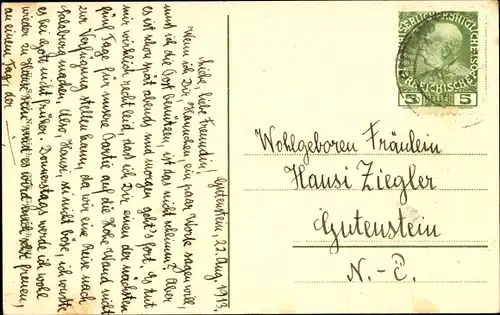 Gutenstein, 22. Aug. 1913.
Siehe, liebe Freundin,
Wenn ich Dir, Hannschen ein paar Worte sagen will,
muß ich die Post benützen, ist das nicht alleinen? Aber
es ist schon spät abends und morgen geht's fort. Es tut
mir wirklich recht leid, daß ich Dir einen der nächsten
fünf Tage für unsere Partie auf die Hohe Wand nicht
zur Verfügung stellen kann, da wir eine Reise nach
Salzburg machen. Also, Hansi, ist nicht böse, ich wußte
es bei Gott nicht früher. Donnerstags werde ich wohl
wieder zu Hause sein
an einem Tag, der
KAISERLICHE KÖNIGLICHE
ÖSTERREICHISCHE POST
5 HELLER 5
Wohlgeboren Fräulein
Hansi Ziegler
Gutenstein
N.-Ö.